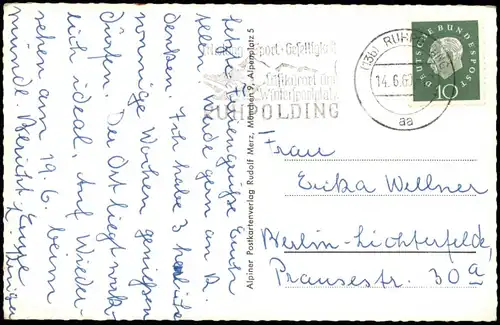 herzl. Feriengrüße Eurer
allen. Werde gern an R.
denken. Ich habe 3 herrliche
sonnige Wochen genießen
dürfen. Der Ort liegt wirk-
lich ideal. Auf Wieder-
sehen am 19.6. beim
Bericht
Alpiner Postkartenverlag Rudolf Merz, München 9, Alpenplatz 5
Sport · Geselligkeit
Luftkurort und
Wintersportplatz
RUHPOLDING
(13b) RUHPOLDING
14.6.60
aa
DEUTSCHE BUNDESPOST
10
Frau
Erika Wellner
Berlin-Lichterfelde
Prausestr. 30a